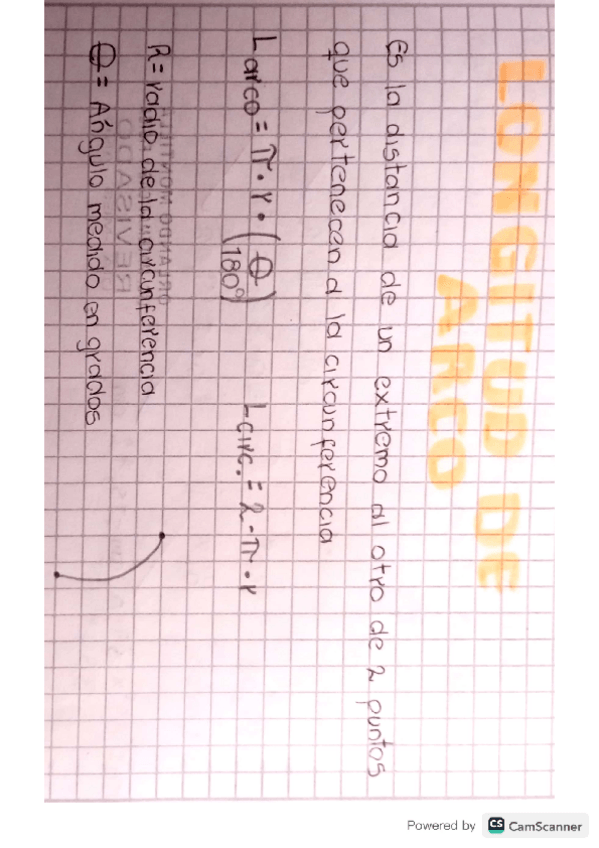 LONGITUD DE
ARCO
Es la distancia de un extremo al otro de 2 puntos
que pertenecen a la circunferencia
Larco = π · r · (θ/180°)    Lcirc. = 2 · π · r
R = radio de la circunferencia
θ = Ángulo medido en grados
REVISADO
Powered by CS CamScanner